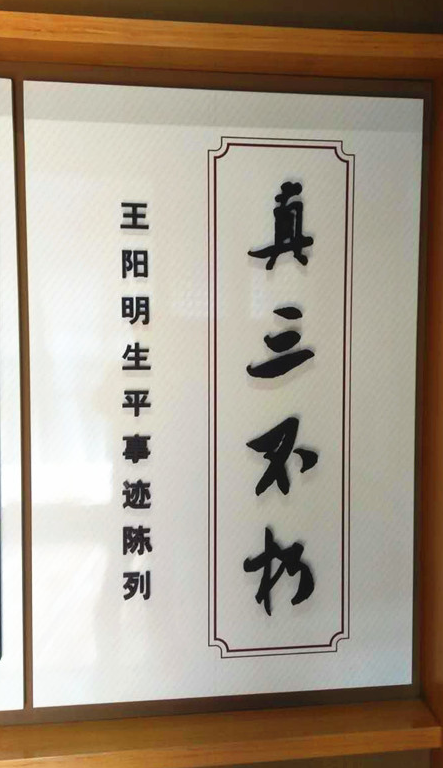 真三不朽
王阳明生平事迹陈列